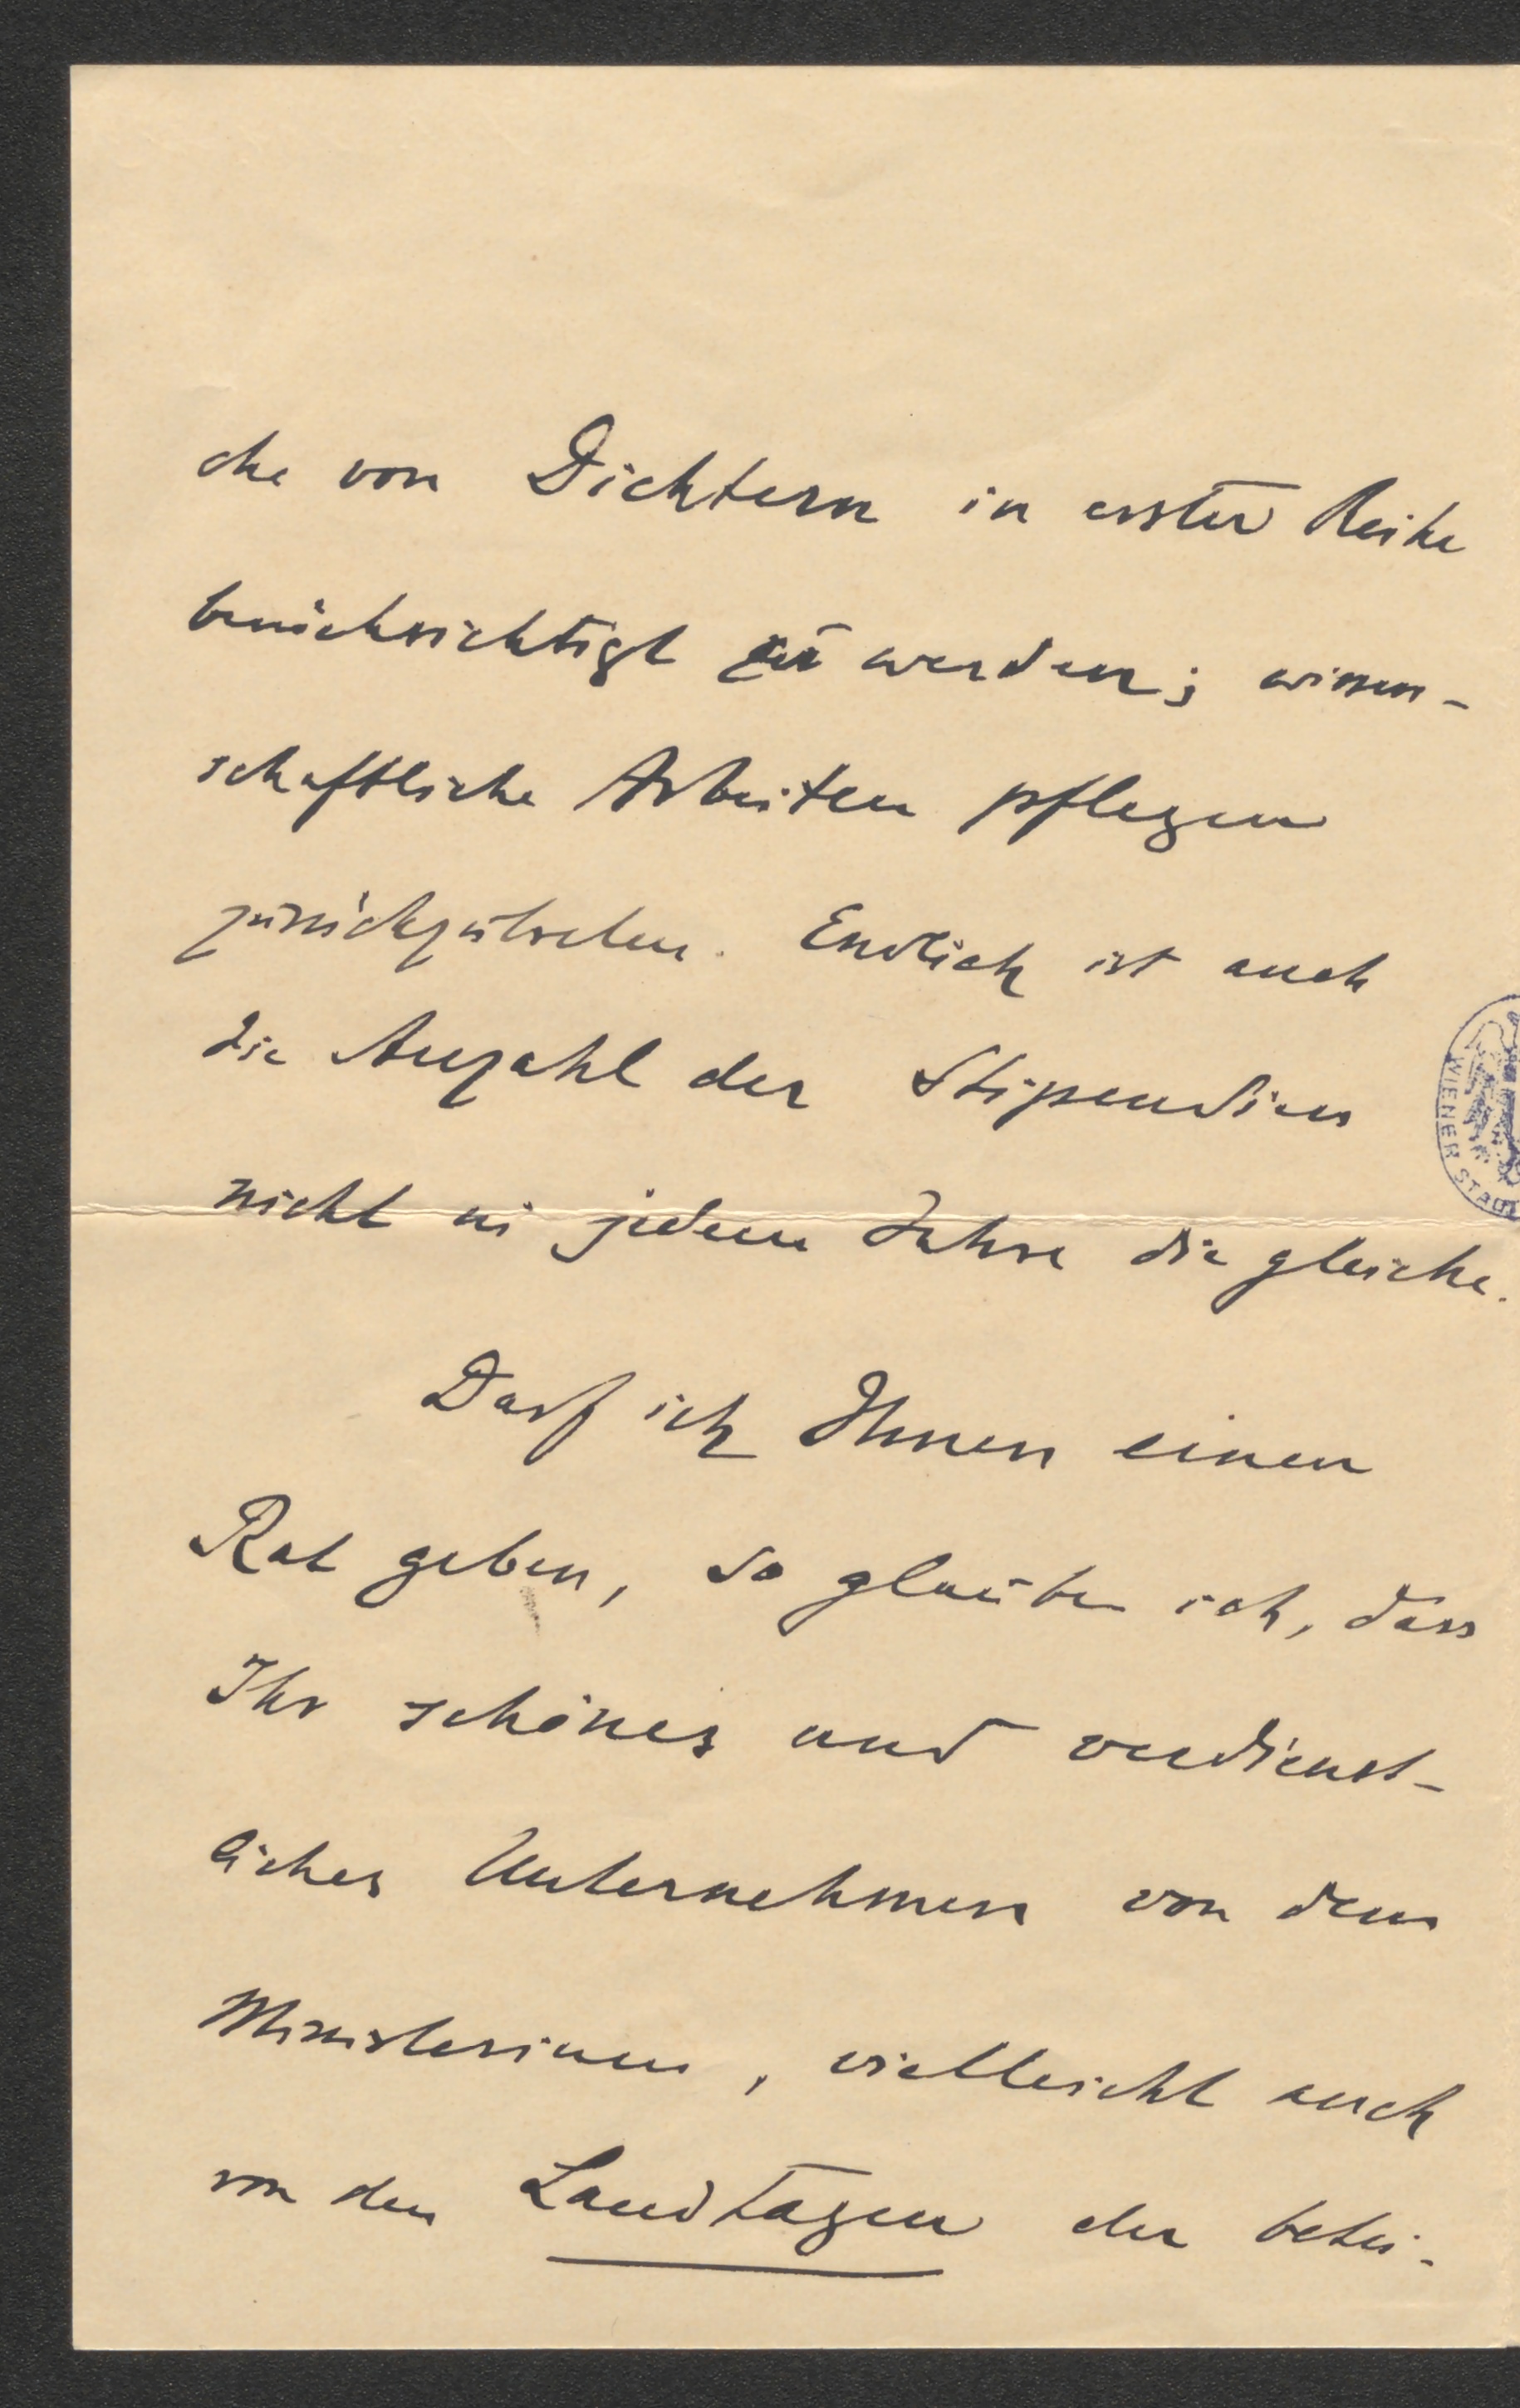 che von Dichtern in erster Reihe
berücksichtigt zu werden; wissen-
schaftliche Arbeiten pflegen
zurückzutreten. Endlich ist auch
die Anzahl der Stipendien
nicht in jedem Jahre die gleiche.
Darf ich Ihnen einen
Rat geben, so glaube ich, dass
Ihr schönes und verdienst-
liches Unternehmen von dem
Ministerium, vielleicht auch
von den Landtagen der betei-
WIENER STADT